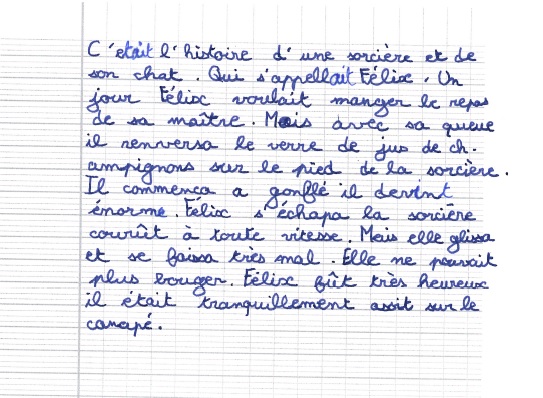 C'était l'histoire d'une sorcière et de
son chat. Qui s'appellait Félix. Un
jour Félix voulait manger le repas
de sa maître. Mais avec sa queue
il renversa le verre de jus de ch-
ampignons sur le pied de la sorcière.
Il commenca a gonflé il devint
énorme. Félix s'échapa la sorcière
courût à toute vitesse. Mais elle glissa
et se faissa très mal. Elle ne pouvait
plus bouger. Félix fût très heureux
il était tranquillement assit sur le
canapé.